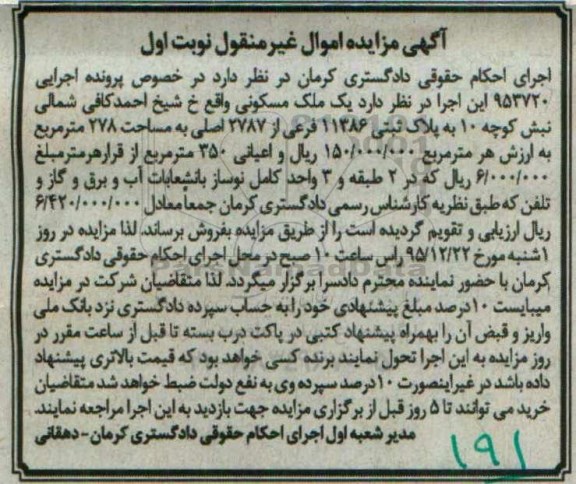 آگهی مزایده اموال غیرمنقول نوبت اول
اجرای احکام حقوقی دادگستری کرمان در نظر دارد در خصوص پرونده اجرایی
۹۵۳۷۲۰ این اجرا در نظر دارد یک ملک مسکونی واقع خ شیخ احمدکافی شمالی
نبش کوچه ۱۰ به پلاک ثبتی ۱۱۳۸۶ فرعی از ۲۷۸۷ اصلی به مساحت ۲۷۸ مترمربع
به ارزش هر مترمربع ۱۵۰/۰۰۰/۰۰۰ ریال و اعیانی ۳۵۰ مترمربع از قرارهرمترمبلغ
۶/۰۰۰/۰۰۰ ریال که در ۲ طبقه و ۳ واحد کامل نوساز بانشعابات آب و برق و گاز و
تلفن که طبق نظریه کارشناس رسمی دادگستری کرمان جمعا معادل ۶/۴۲۰/۰۰۰/۰۰۰
ریال ارزیابی و تقویم گردیده است را از طریق مزایده بفروش برساند. لذا مزایده در روز
۱شنبه مورخ ۹۵/۱۲/۲۲ راس ساعت ۱۰ صبح در محل اجرای احکام حقوقی دادگستری
کرمان با حضور نماینده محترم دادسرا برگزار میگردد. لذا متقاضیان شرکت در مزایده
میبایست ۱۰درصد مبلغ پیشنهادی خود رابه حساب سپرده دادگستری نزد بانک ملی
واریز و قبض آن را بهمراه پیشنهاد کتبی در پاکت درب بسته تا قبل از ساعت مقرر در
روز مزایده به این اجرا تحول نمایند برنده کسی خواهد بود که قیمت بالاتری پیشنهاد
داده باشد در غیراینصورت ۱۰درصد سپرده وی به نفع دولت ضبط خواهد شد متقاضیان
خرید می توانند تا ۵ روز قبل از برگزاری مزایده جهت بازدید به این اجرا مراجعه نمایند.
مدیر شعبه اول اجرای احکام حقوقی دادگستری کرمان-دهقانی
۱۹۱